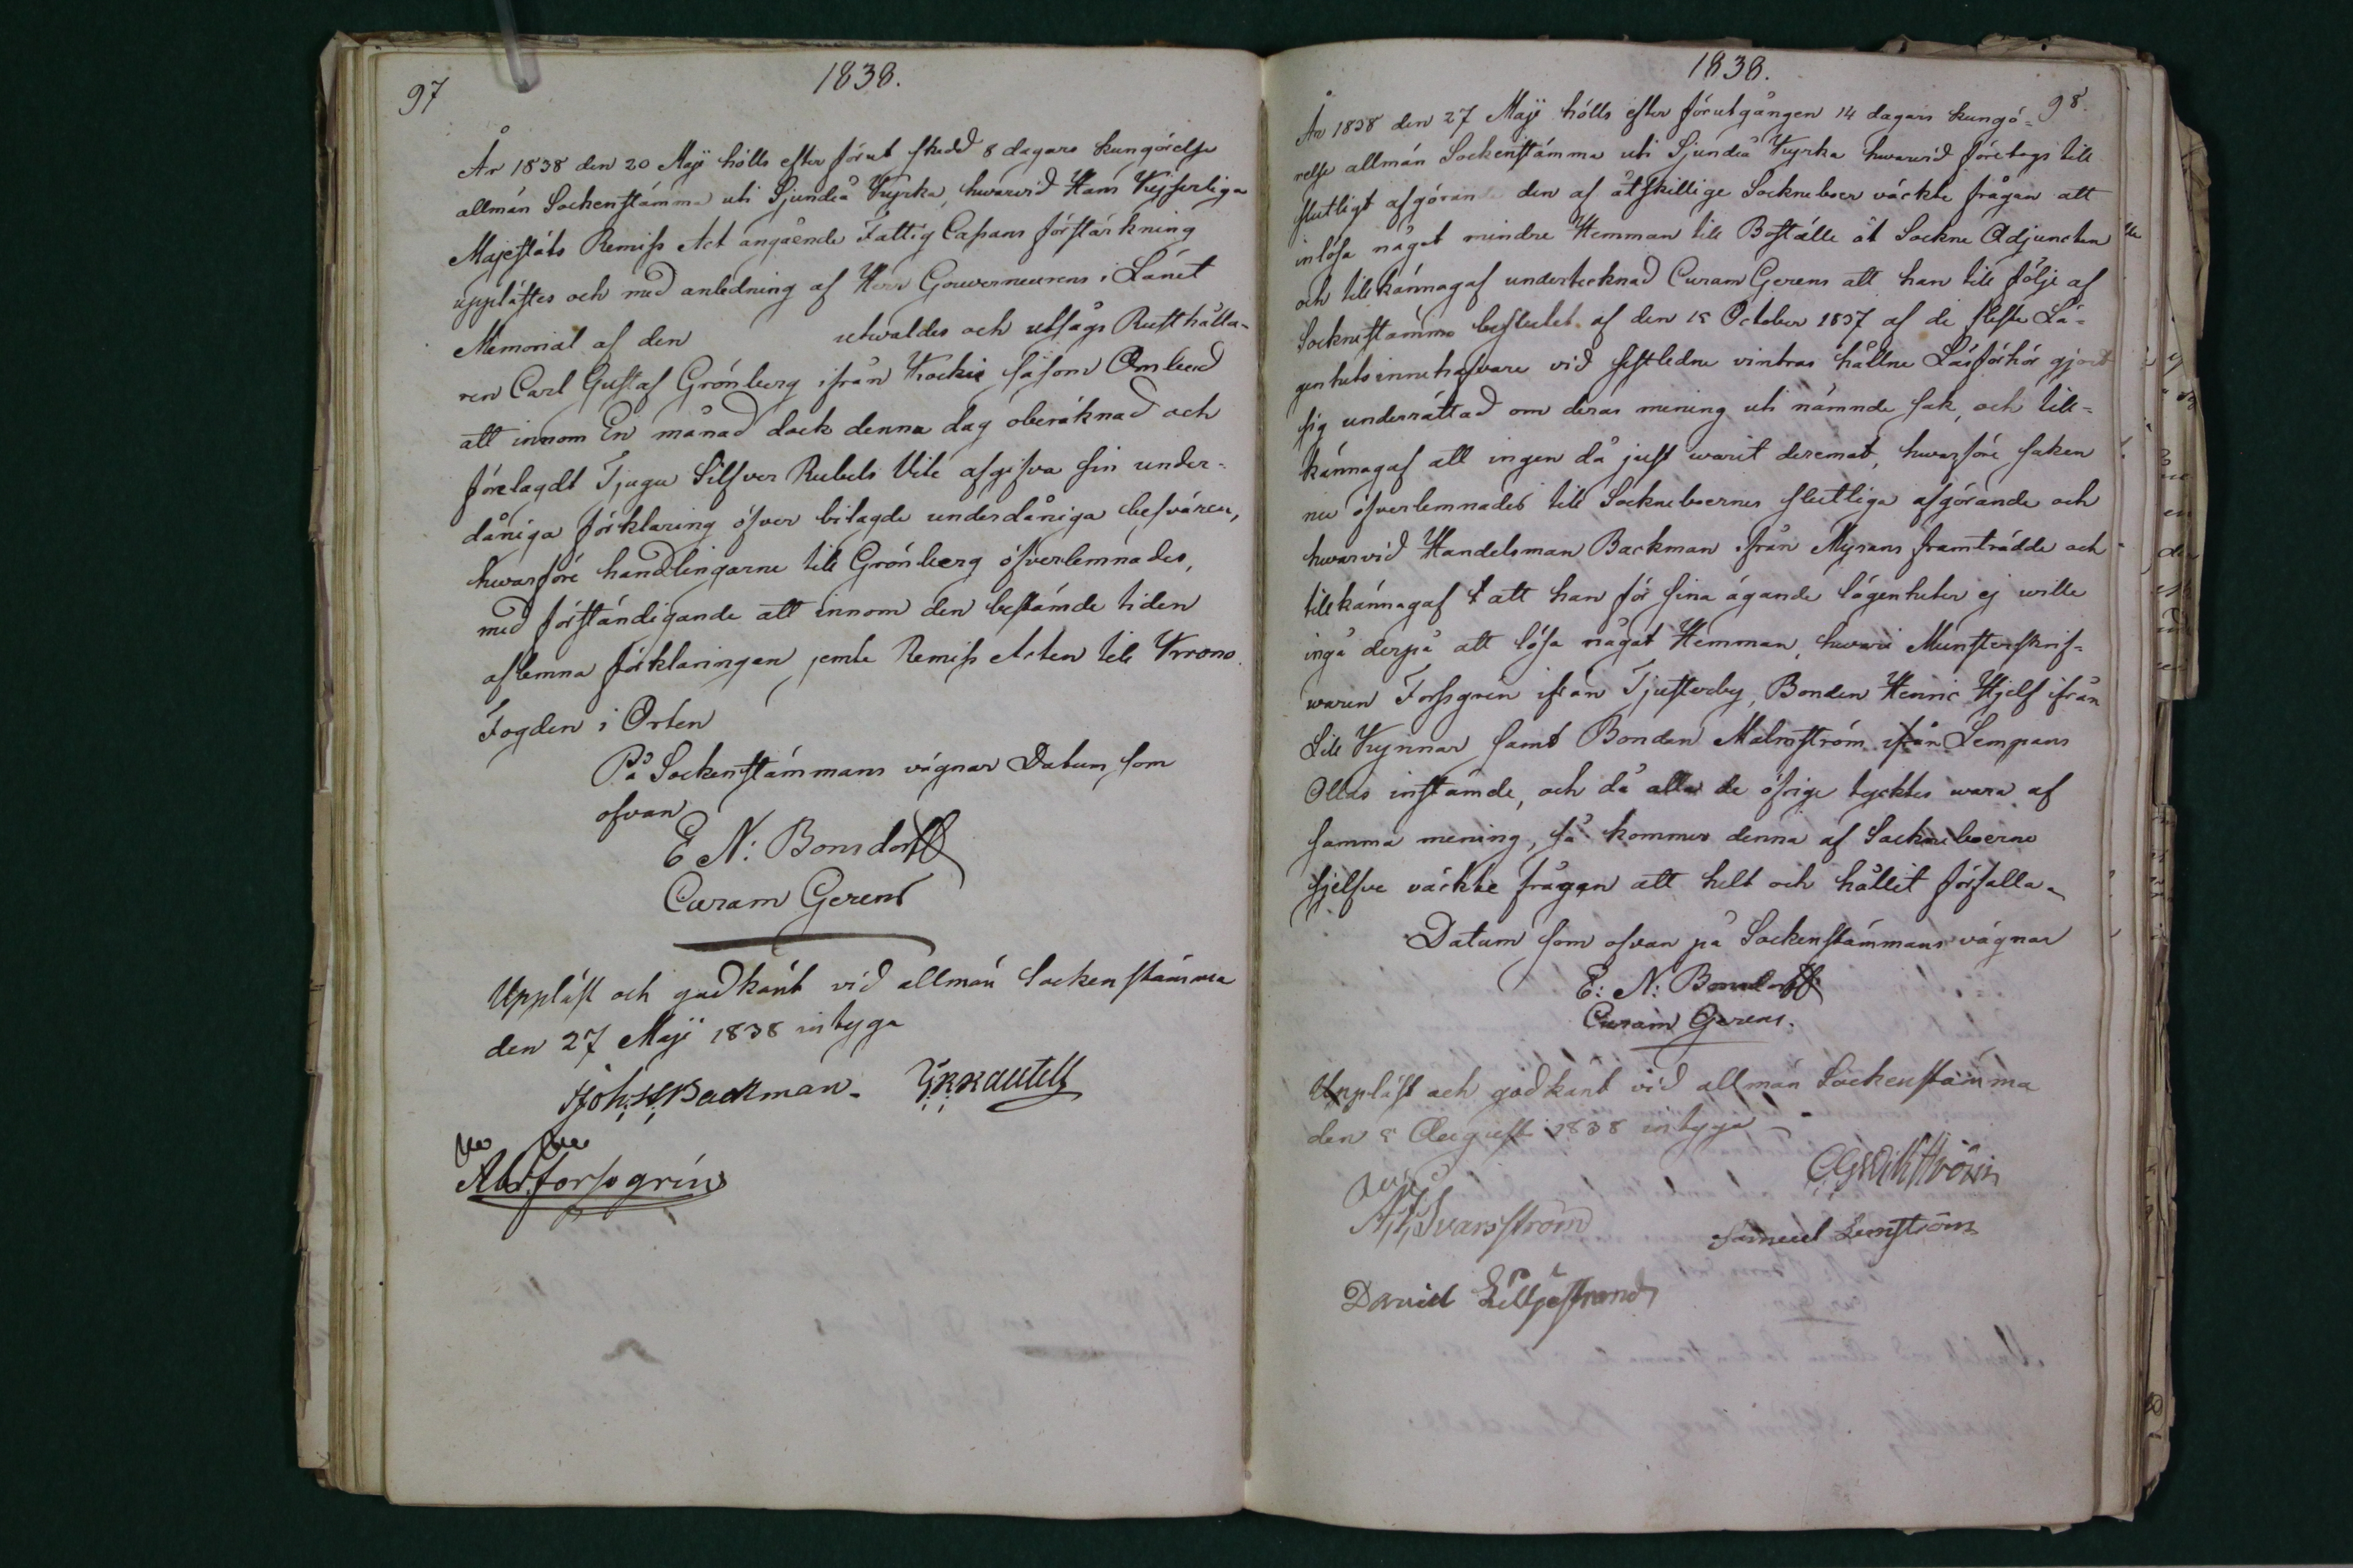 97
1838.
År 1838 den 20 Maji hölls efter förut skedd 8 dagars kungörelse
allmän Sockenstämma uti Sjundeå Kyrka, hwarwid Hans Kejserliga
Majestäts Remiss Act angående Fattig Cassans förstärkning
upplästes och med anledning af Herr Gouverneurens i Länet
Memorial af den utwaldes och utsågs Rusthålla-
ren Carl Gustaf Grönberg ifrån Kockis såsom Ombud
att innom En månad dock denna dag oberäknad och
förelagdt Tjugu Silfver Rubels Vite afgifva sin under-
dåniga förklaring öfver bilagde underdåniga besvären,
hwarföre handlingarne till Grönberg öfverlemnades,
med förständigande att innom den bestämde tiden
aflemna förklaringen jemte Remiss Acten till Krono
Fogden i Orten
På Sockenstämmans vägnar Datum som
ofvan
E N: Bonsdorff
Curam Gerens
Uppläst och godkänt vid allmän Sockenstämma
den 27 Maji 1838 intyga
Joh: H: Backman.
Abr: Forssgrén
1838.
98.
År 1838 den 27 Maji hölls efter förutgången 14 dagars kungö-
relse allmän Sockenstämma uti Sjundeå Kyrka hwarwid företogs till
slutligt afgörande den af åtskillige Sockneboer väckte frågan att
inlösa något mindre Hemman till Boställe åt Sockne Adjuncten
och tillkännagaf undertecknad Curam Gerens att han till följe af
Socknestämmo beslutet af den 15 October 1837 af de fleste Lä-
genhets innehafvare vid sistledne vintras hållne Läsförhör gjort
sig underrättad om deras mening uti nämnde sak, och till-
kännagaf att ingen då just warit deremot, hwarföre saken
nu öfverlemnades till Sockneboernes slutliga afgörande och
hwarvid Handelsman Backman ifrån Myrans framträdde och
tillkännagaf att han för sina ägande lägenheter ej wille
ingå derpå att lösa något Hemman, hwari Munsterskrif-
waren Forssgrén ifrån Tjusterby, Bonden Henric Hjelf ifrån
Lill Kynnar samt Bonden Malmström ifrån Lempans
Ollas instämde, och då alla de öfrige tycktes wara af
samma mening, så kommer denna af Sockneboerne
sjelfve väckte frågan att helt och hållit förfalla.
Datum som ofvan på Sockenstämmans vägnar
E: N: Bonsdorff
Curam Gerens.
Uppläst och godkänt vid allmän Sockenstämma
den 5 August 1838 intyga
CGWikström
Svansström
Samuel Lenström
David Liljestrand